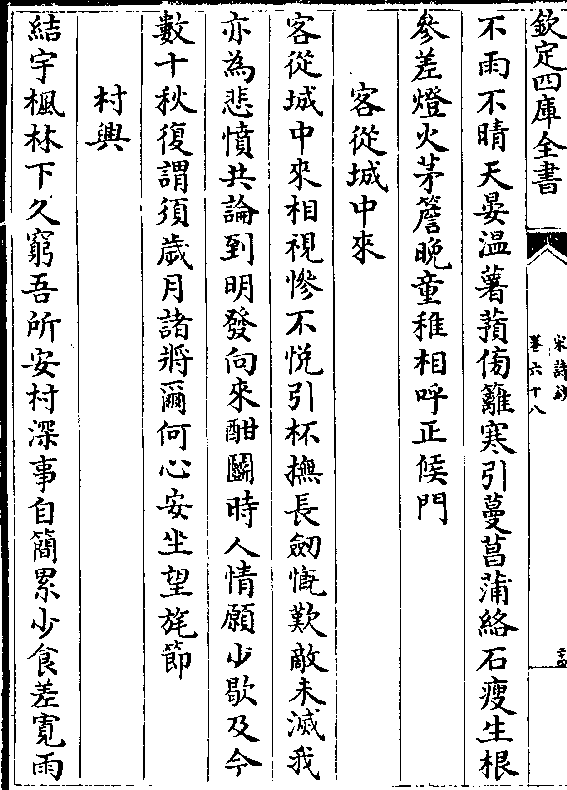 欽定四庫全書
宋詩鈔
卷六十八
不雨不晴天晏温薯蕷傍籬寒引蔓菖蒲絡石瘦生根
參差燈火茅簷晚童稚相呼正候門
客從城中來
客從城中來相視慘不悦引杯撫長劒慨歎敵未滅我
亦為悲憤共論到明發向來酣鬬時人情願少歇及今
數十秋復謂須歲月諸將爾何心安坐望旄節
村興
結宇楓林下久窮吾所安村深事自簡累少食差寛雨